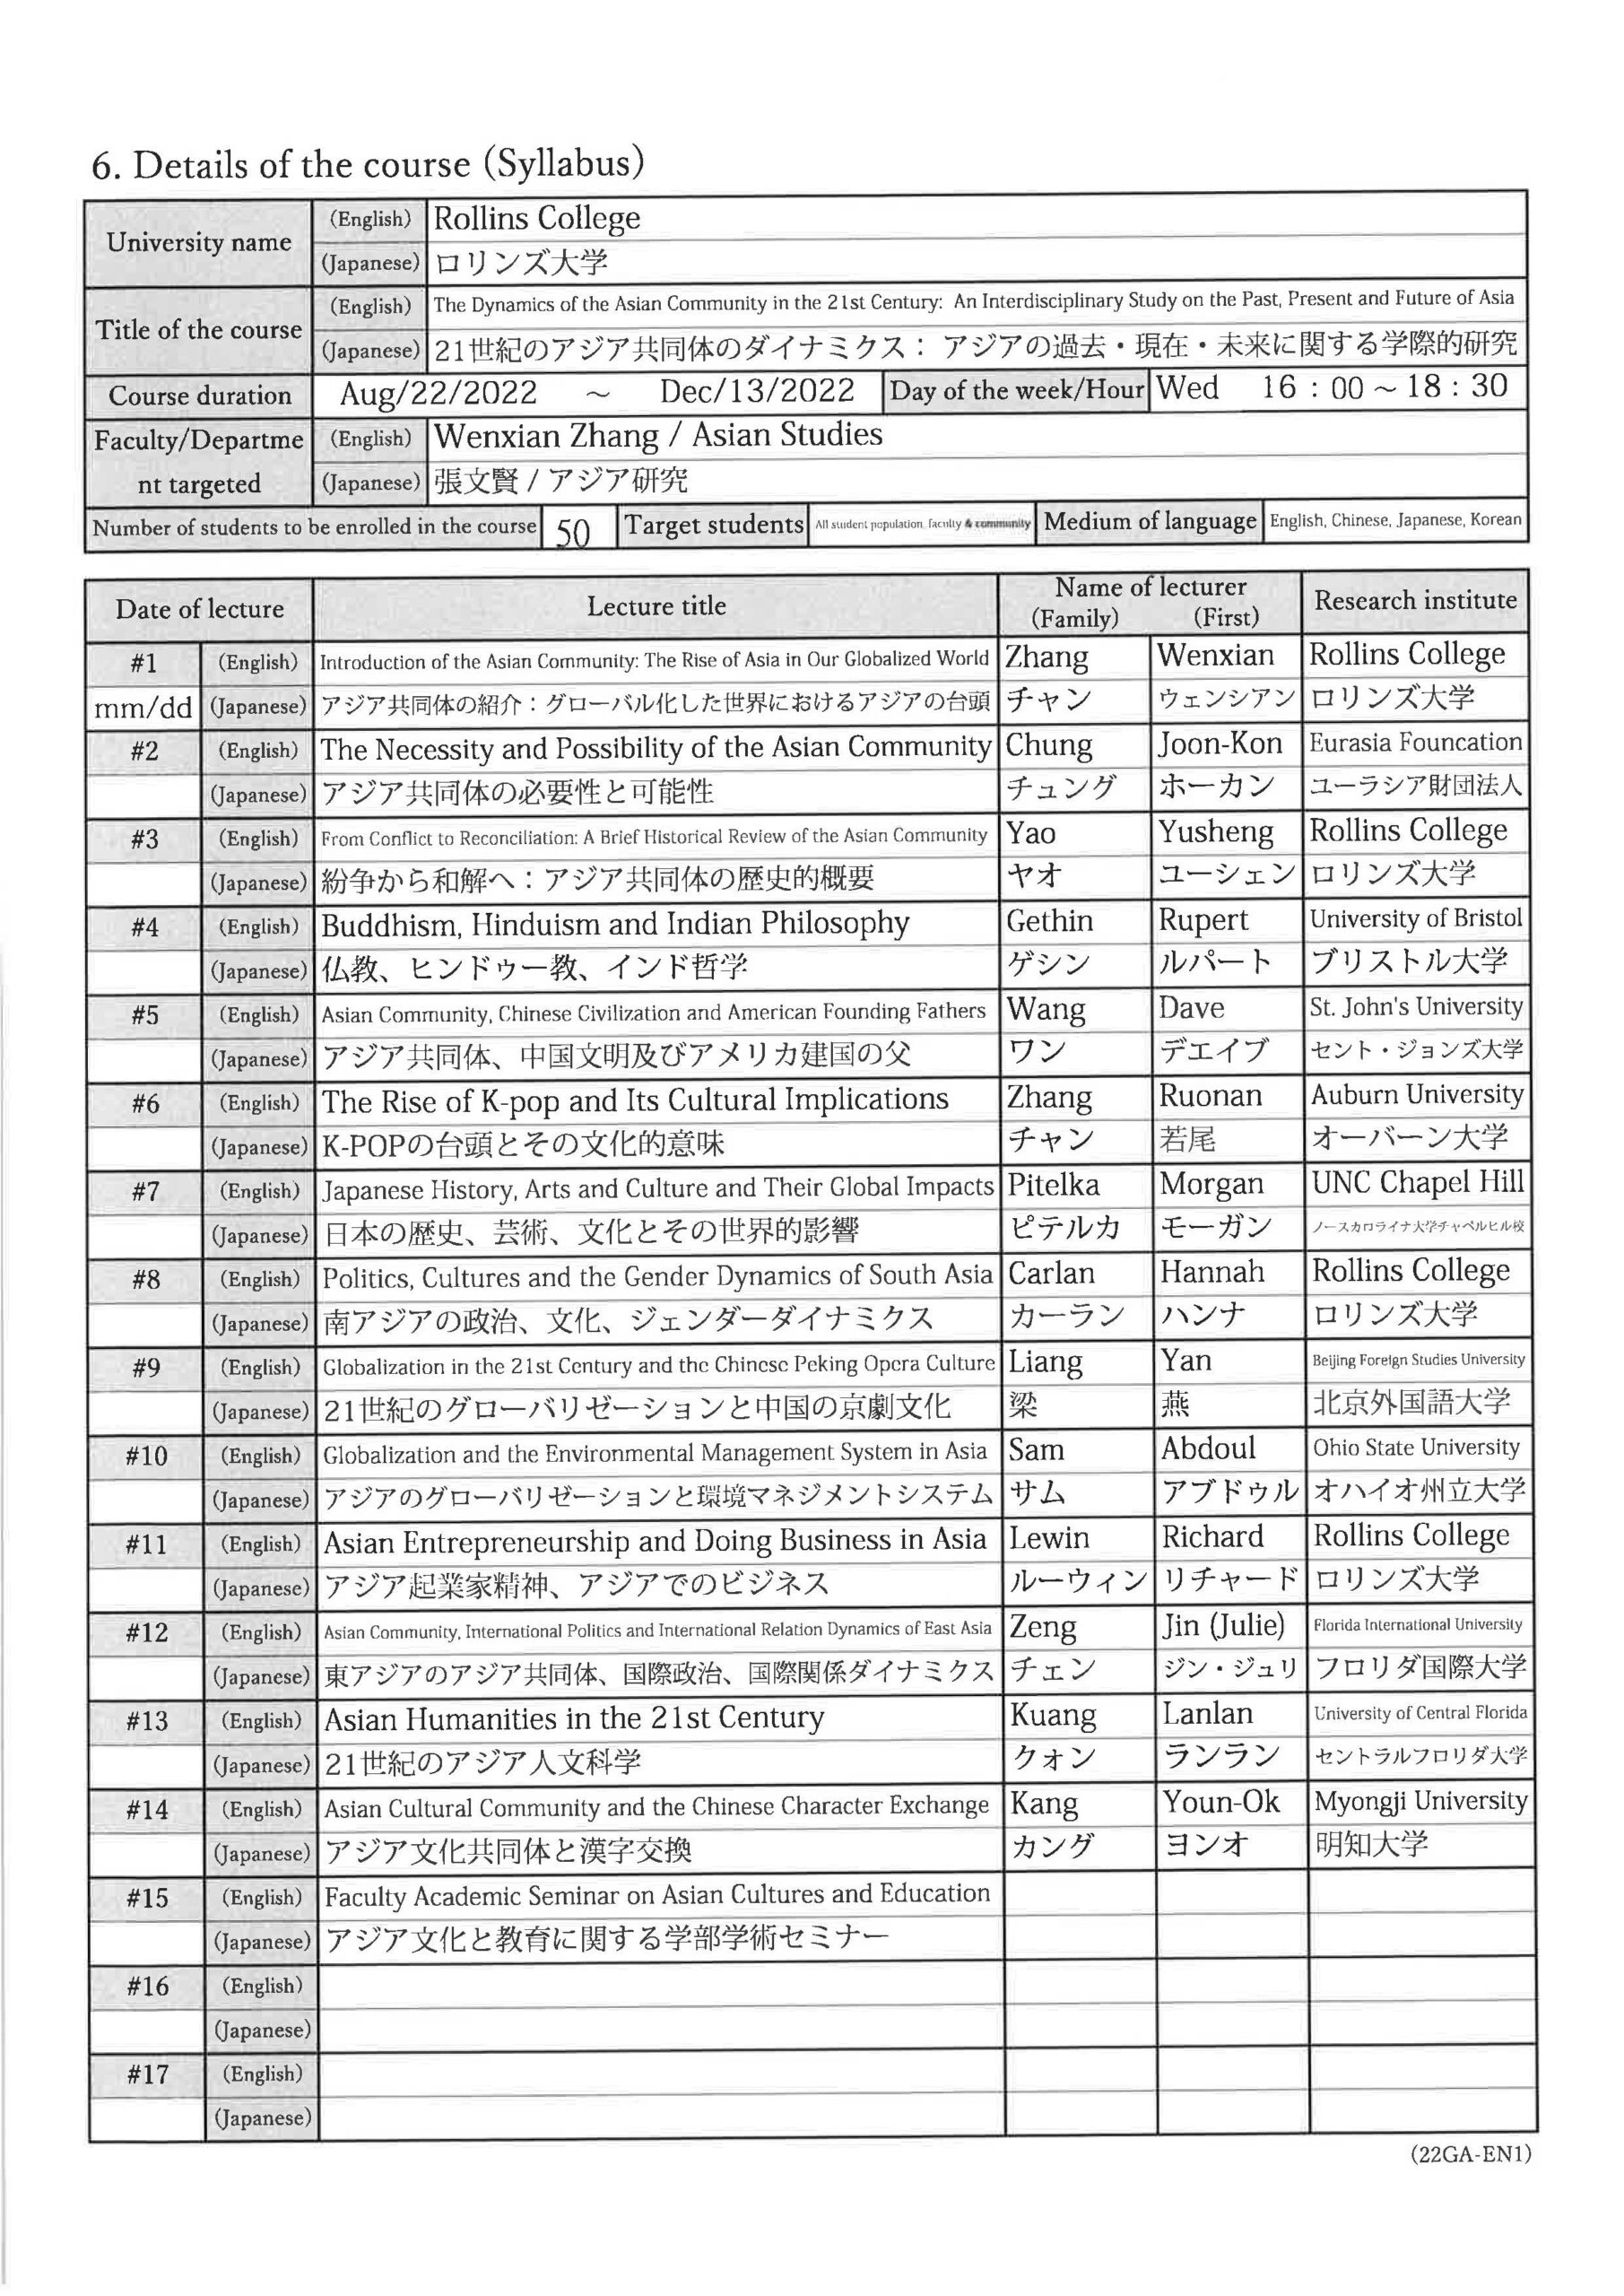 6. Details of the course (Syllabus)
University name (English) Rollins College
(Japanese) ロリンズ大学
Title of the course (English) The Dynamics of the Asian Community in the 21st Century: An Interdisciplinary Study on the Past, Present and Future of Asia
(Japanese) 21世紀のアジア共同体のダイナミクス： アジアの過去・現在・未来に関する学際的研究
Course duration Aug/22/2022 ～ Dec/13/2022 Day of the week/Hour Wed 16：00～18：30
Faculty/Departme (English) Wenxian Zhang / Asian Studies
nt targeted (Japanese) 張文賢 / アジア研究
Number of students to be enrolled in the course 50 Target students All student population, faculty & community Medium of language English, Chinese, Japanese, Korean
Date of lecture Lecture title Name of lecturer Research institute
(Family) (First)
#1 (English) Introduction of the Asian Community: The Rise of Asia in Our Globalized World Zhang Wenxian Rollins College
mm/dd (Japanese) アジア共同体の紹介：グローバル化した世界におけるアジアの台頭 チャン ウェンシアン ロリンズ大学
#2 (English) The Necessity and Possibility of the Asian Community Chung Joon-Kon Eurasia Founcation
(Japanese) アジア共同体の必要性と可能性 チュング ホーカン ユーラシア財団法人
#3 (English) From Conflict to Reconciliation: A Brief Historical Review of the Asian Community Yao Yusheng Rollins College
(Japanese) 紛争から和解へ：アジア共同体の歴史的概要 ヤオ ユーシェン ロリンズ大学
#4 (English) Buddhism, Hinduism and Indian Philosophy Gethin Rupert University of Bristol
(Japanese) 仏教、ヒンドゥー教、インド哲学 ゲシン ルパート ブリストル大学
#5 (English) Asian Community, Chinese Civilization and American Founding Fathers Wang Dave St. John's University
(Japanese) アジア共同体、中国文明及びアメリカ建国の父 ワン デエイブ セント・ジョンズ大学
#6 (English) The Rise of K-pop and Its Cultural Implications Zhang Ruonan Auburn University
(Japanese) K-POPの台頭とその文化的意味 チャン 若尾 オーバーン大学
#7 (English) Japanese History, Arts and Culture and Their Global Impacts Pitelka Morgan UNC Chapel Hill
(Japanese) 日本の歴史、芸術、文化とその世界的影響 ピテルカ モーガン ノースカロライナ大学チャペルヒル校
#8 (English) Politics, Cultures and the Gender Dynamics of South Asia Carlan Hannah Rollins College
(Japanese) 南アジアの政治、文化、ジェンダーダイナミクス カーラン ハンナ ロリンズ大学
#9 (English) Globalization in the 21st Century and the Chinese Peking Opera Culture Liang Yan Beijing Foreign Studies University
(Japanese) 21世紀のグローバリゼーションと中国の京劇文化 梁 燕 北京外国語大学
#10 (English) Globalization and the Environmental Management System in Asia Sam Abdoul Ohio State University
(Japanese) アジアのグローバリゼーションと環境マネジメントシステム サム アブドゥル オハイオ州立大学
#11 (English) Asian Entrepreneurship and Doing Business in Asia Lewin Richard Rollins College
(Japanese) アジア起業家精神、アジアでのビジネス ルーウィン リチャード ロリンズ大学
#12 (English) Asian Community, International Politics and International Relation Dynamics of East Asia Zeng Jin (Julie) Florida International University
(Japanese) 東アジアのアジア共同体、国際政治、国際関係ダイナミクス チェン ジン・ジュリ フロリダ国際大学
#13 (English) Asian Humanities in the 21st Century Kuang Lanlan University of Central Florida
(Japanese) 21世紀のアジア人文科学 クォン ランラン セントラルフロリダ大学
#14 (English) Asian Cultural Community and the Chinese Character Exchange Kang Youn-Ok Myongji University
(Japanese) アジア文化共同体と漢字交換 カング ヨンオ 明知大学
#15 (English) Faculty Academic Seminar on Asian Cultures and Education
(Japanese) アジア文化と教育に関する学部学術セミナー
#16 (English)
(Japanese)
#17 (English)
(Japanese)
(22GA-EN1)